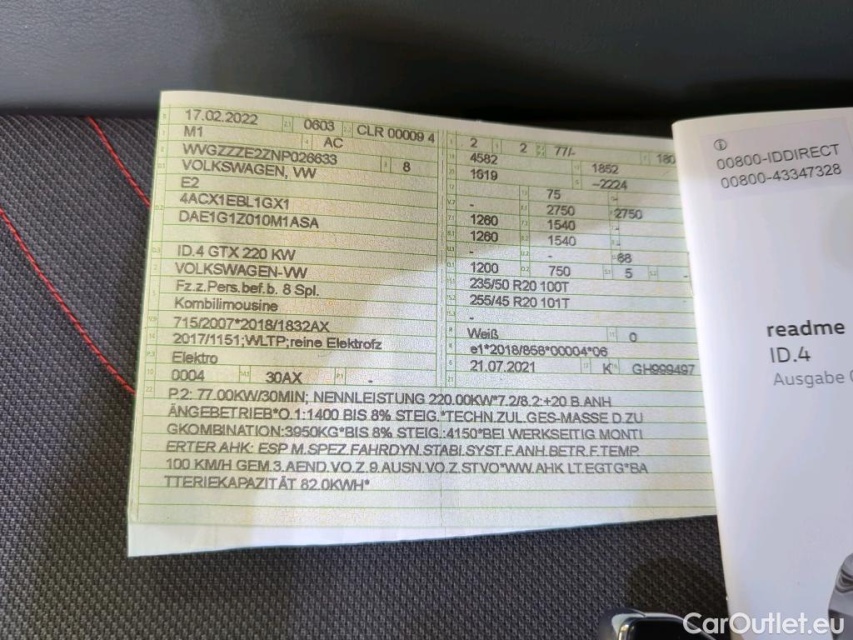 17.02.2022 0603 CLR 00009 4
M1 AC
WVGZZZE2ZNP026633 8
VOLKSWAGEN, VW
E2
4ACX1EBL1GX1
DAE1G1Z010M1ASA
ID.4 GTX 220 KW
VOLKSWAGEN-VW
Fz.z.Pers.bef.b. 8 Spl.
Kombilimousine
715/2007*2018/1832AX
2017/1151;WLTP;reine Elektrofz
Elektro
0004 30AX -
2 2 77/- 180
4582 1852
1619 -2224
75
- 2750 2750
1260 1540 -
1260 1540 -
- 68
1200 750 5 -
235/50 R20 100T
255/45 R20 101T
-
Weiß 0
e1*2018/858*00004*06
21.07.2021 K GH999497
P.2: 77.00KW/30MIN; NENNLEISTUNG 220.00KW*7.2/8.2:+20 B.ANH
ÄNGEBETRIEB*O.1:1400 BIS 8% STEIG.*TECHN.ZUL.GES-MASSE D.ZU
GKOMBINATION:3950KG*BIS 8% STEIG.:4150*BEI WERKSEITIG MONTI
ERTER AHK: ESP M.SPEZ.FAHRDYN.STABI.SYST.F.ANH.BETR.F.TEMP.
100 KM/H GEM.3.AEND.VO.Z.9.AUSN.VO.Z.STVO*WW.AHK LT.EGTG*BA
TTERIEKAPAZITÄT 82.0KWH*
00800-IDDIRECT
00800-43347328
readme
ID.4
Ausgabe
CarOutlet.eu